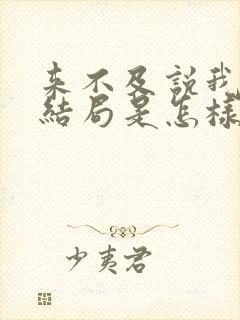 来不及説我
結局是怎樣
少夷君